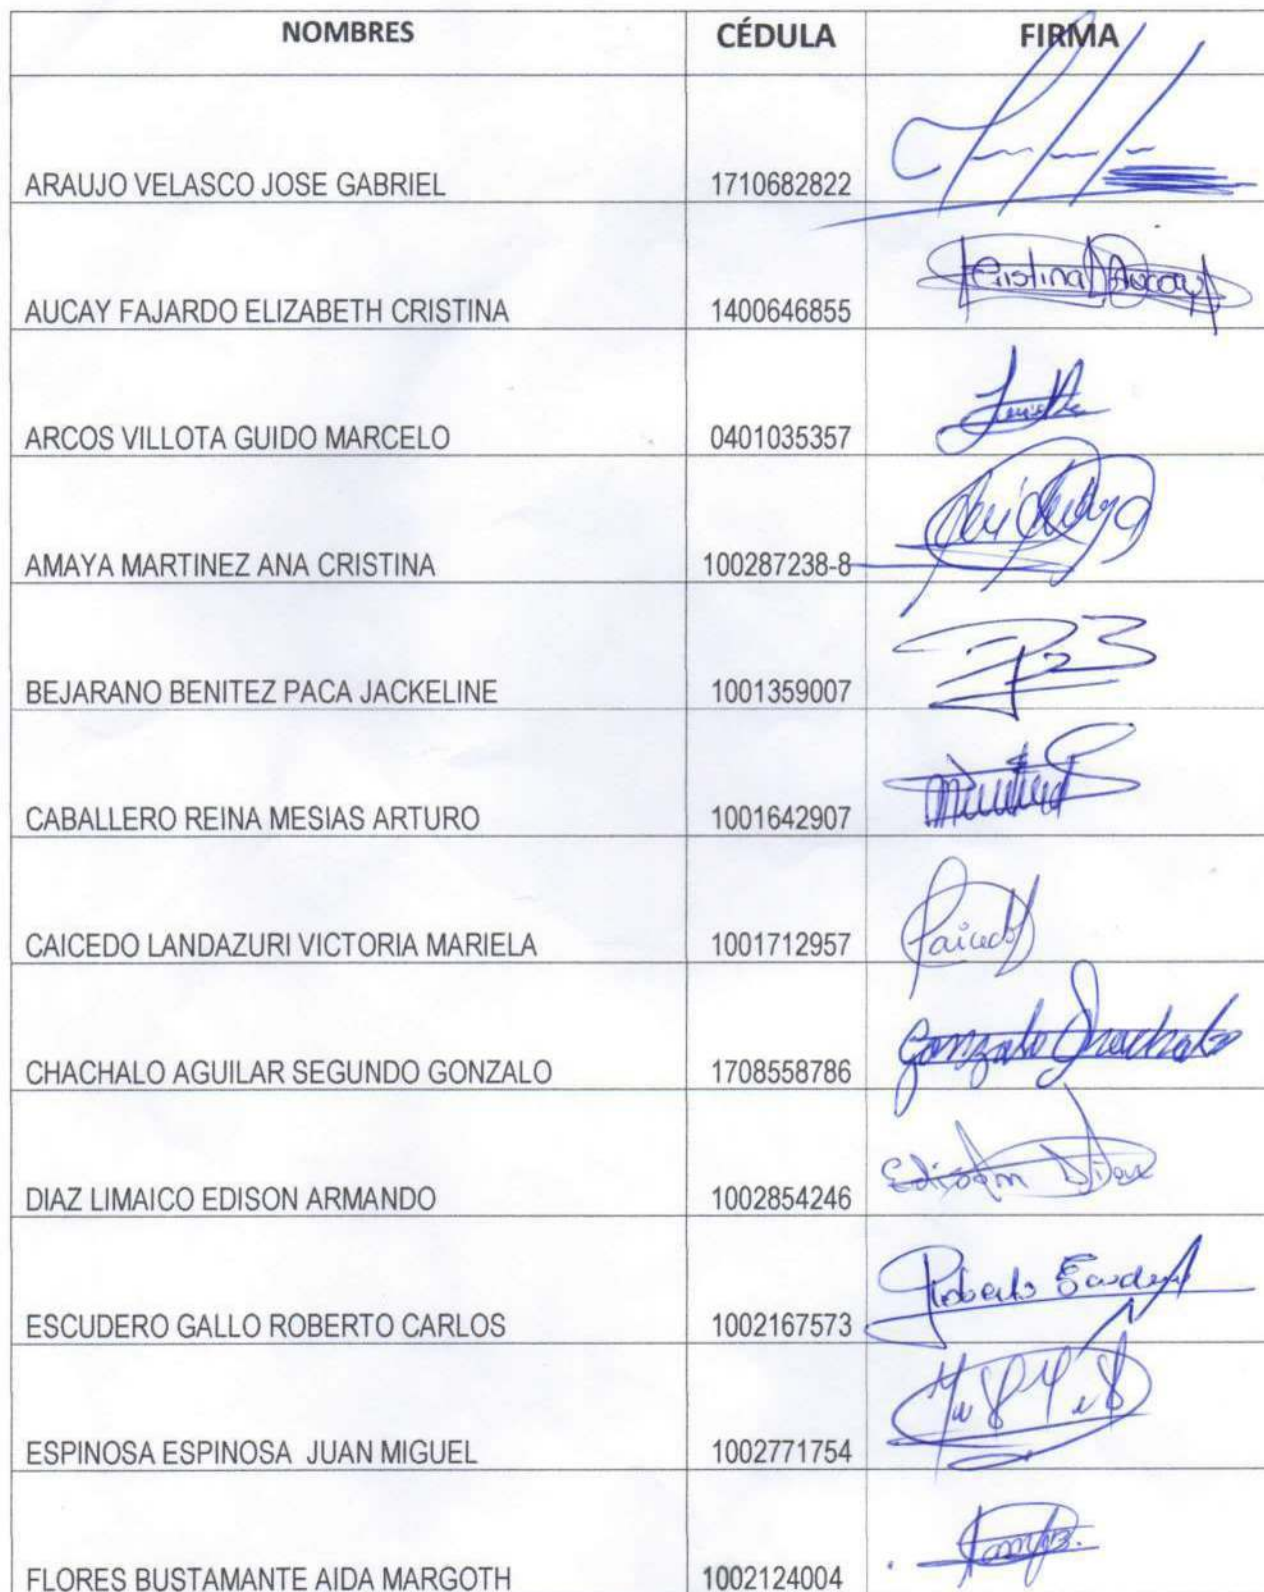 NOMBRES CÉDULA FIRMA
ARAUJO VELASCO JOSE GABRIEL 1710682822
AUCAY FAJARDO ELIZABETH CRISTINA 1400646855 Cristina Aucay
ARCOS VILLOTA GUIDO MARCELO 0401035357
AMAYA MARTINEZ ANA CRISTINA 100287238-8
BEJARANO BENITEZ PACA JACKELINE 1001359007
CABALLERO REINA MESIAS ARTURO 1001642907
CAICEDO LANDAZURI VICTORIA MARIELA 1001712957 Caicedo
CHACHALO AGUILAR SEGUNDO GONZALO 1708558786 Gonzalo Chachalo
DIAZ LIMAICO EDISON ARMANDO 1002854246 Edison Diaz
ESCUDERO GALLO ROBERTO CARLOS 1002167573 Roberto Escudero
ESPINOSA ESPINOSA JUAN MIGUEL 1002771754
FLORES BUSTAMANTE AIDA MARGOTH 1002124004